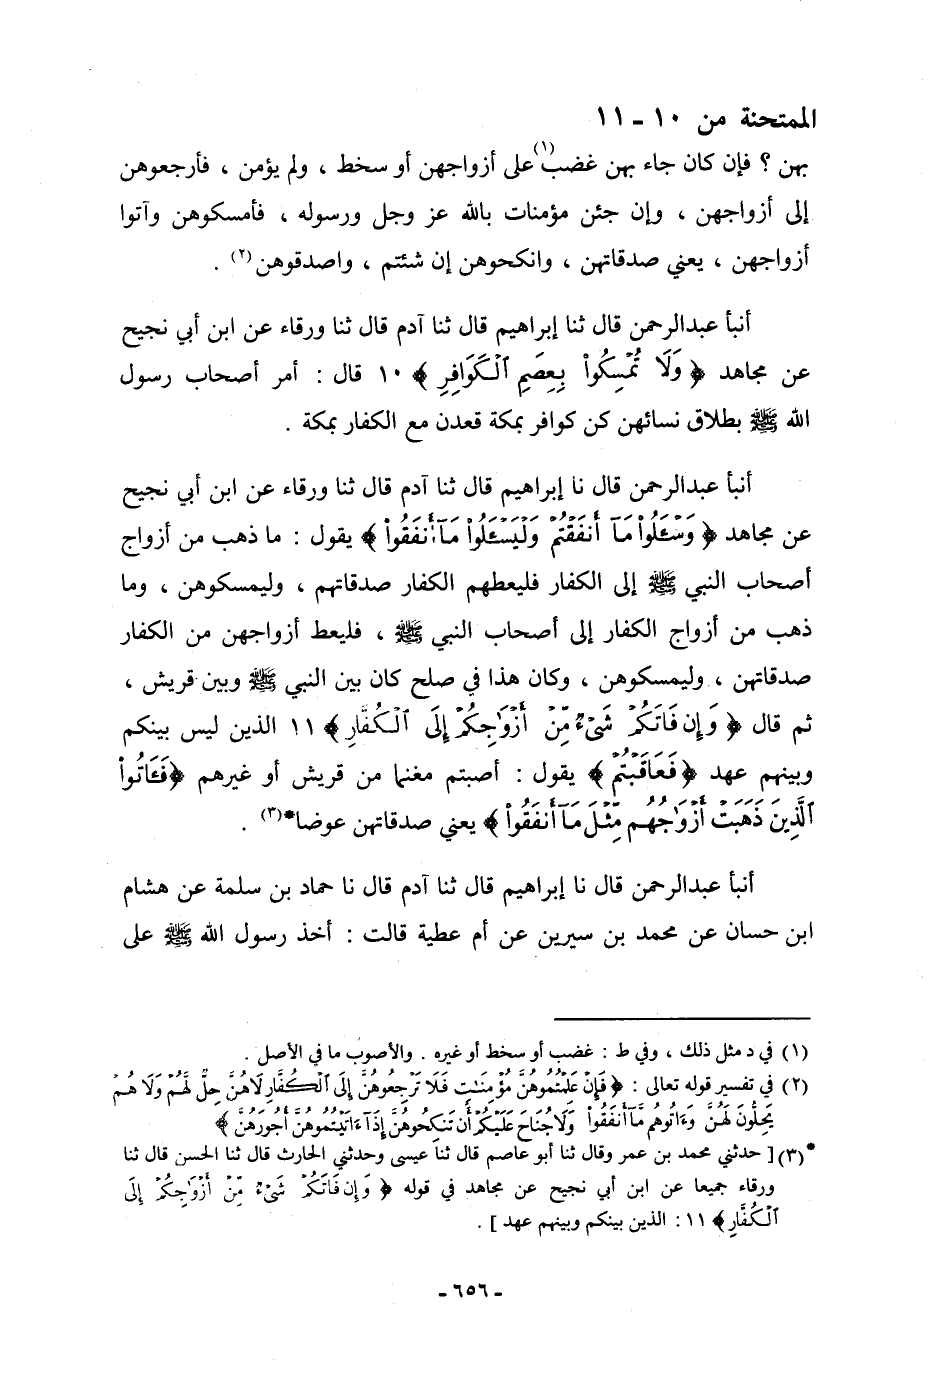 الممتحنة من ١٠ - ١١
بهن ؟ فإن كان جاء بهن غضب(١) على أزواجهن أو سخط ، ولم يؤمن ، فأرجعوهن
إلى أزواجهن ، وإن جئن مؤمنات بالله عز وجل ورسوله ، فأمسكوهن وآتوا
أزواجهن ، يعني صدقاتهن ، وانكحوهن إن شئتم ، واصدقوهن(٢) .
أنبأ عبدالرحمن قال ثنا إبراهيم قال ثنا آدم قال ثنا ورقاء عن ابن أبي نجيح
عن مجاهد ﴿ وَلَا تُمْسِكُوا۟ بِعِصَمِ ٱلْكَوَافِرِ ﴾ ١٠ قال : أمر أصحاب رسول
الله ﷺ بطلاق نسائهن كن كوافر بمكة قعدن مع الكفار بمكة .
أنبأ عبدالرحمن قال نا إبراهيم قال ثنا آدم قال ثنا ورقاء عن ابن أبي نجيح
عن مجاهد ﴿ وَسْـَٔلُوا۟ مَآ أَنفَقْتُمْ وَلْيَسْـَٔلُوا۟ مَآ أَنفَقُوا۟ ﴾ يقول : ما ذهب من أزواج
أصحاب النبي ﷺ إلى الكفار فليعطهم الكفار صدقاتهم ، وليمسكوهن ، وما
ذهب من أزواج الكفار إلى أصحاب النبي ﷺ ، فليعط أزواجهن من الكفار
صدقاتهن ، وليمسكوهن ، وكان هذا في صلح كان بين النبي ﷺ وبين قريش ،
ثم قال ﴿ وَإِن فَاتَكُمْ شَىْءٌ مِّنْ أَزْوَٰجِكُمْ إِلَى ٱلْكُفَّارِ ﴾ ١١ الذين ليس بينكم
وبينهم عهد ﴿ فَعَاقَبْتُمْ ﴾ يقول : أصبتم مغنما من قريش أو غيرهم ﴿ فَـَٔاتُوا۟
ٱلَّذِينَ ذَهَبَتْ أَزْوَٰجُهُم مِّثْلَ مَآ أَنفَقُوا۟ ﴾ يعني صدقاتهن عوضا*(٣) .
أنبأ عبدالرحمن قال نا إبراهيم قال ثنا آدم قال نا حماد بن سلمة عن هشام
ابن حسان عن محمد بن سيرين عن أم عطية قالت : أخذ رسول الله ﷺ على
(١) في د مثل ذلك ، وفي ط : غضب أو سخط أو غيره . والأصوب ما في الأصل .
(٢) في تفسير قوله تعالى : ﴿ فَإِنْ عَلِمْتُمُوهُنَّ مُؤْمِنَٰتٍ فَلَا تَرْجِعُوهُنَّ إِلَى ٱلْكُفَّارِ لَا هُنَّ حِلٌّ لَّهُمْ وَلَا هُمْ
يَحِلُّونَ لَهُنَّ وَءَاتُوهُم مَّآ أَنفَقُوا۟ وَلَا جُنَاحَ عَلَيْكُمْ أَن تَنكِحُوهُنَّ إِذَآ ءَاتَيْتُمُوهُنَّ أُجُورَهُنَّ ﴾
*(٣) [ حدثني محمد بن عمر وقال ثنا أبو عاصم قال ثنا عيسى وحدثني الحارث قال ثنا الحسن قال ثنا
ورقاء جميعا عن ابن أبي نجيح عن مجاهد في قوله ﴿ وَإِن فَاتَكُمْ شَىْءٌ مِّنْ أَزْوَٰجِكُمْ إِلَى
ٱلْكُفَّارِ ﴾ ١١ : الذين بينكم وبينهم عهد ] .
- ٦٥٦ -